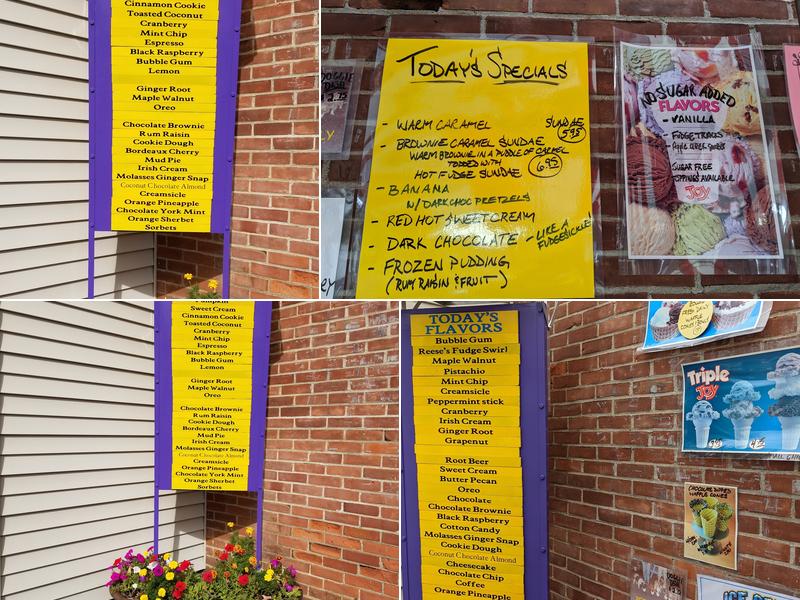 Cinnamon Cookie
Toasted Coconut
Cranberry
Mint Chip
Espresso
Black Raspberry
Bubble Gum
Lemon
Ginger Root
Maple Walnut
Oreo
Chocolate Brownie
Rum Raisin
Cookie Dough
Bordeaux Cherry
Mud Pie
Irish Cream
Molasses Ginger Snap
Coconut Chocolate Almond
Creamsicle
Orange Pineapple
Chocolate York Mint
Orange Sherbet
Sorbets
TODAY'S SPECIALS
- WARM CARAMEL SUNDAE 5.95
- BROWNIE CARAMEL SUNDAE
WARM BROWNIE IN A PUDDLE OF CARMEL
TOPPED WITH
HOT FUDGE SUNDAE 6.95
- BANANA
W/ DARK CHOC PRETZELS
- RED HOT SWEET CREAM
- DARK CHOCOLATE - LIKE A
FUDGESICKLE!
- FROZEN PUDDING
(RUM RAISIN & FRUIT)
NO SUGAR ADDED
FLAVORS
- VANILLA
- FUDGE TRACKS
SUGAR FREE
TOPPINGS AVAILABLE
JOY
Pumpkin
Sweet Cream
Cinnamon Cookie
Toasted Coconut
Cranberry
Mint Chip
Espresso
Black Raspberry
Bubble Gum
Lemon
Ginger Root
Maple Walnut
Oreo
Chocolate Brownie
Rum Raisin
Cookie Dough
Bordeaux Cherry
Mud Pie
Irish Cream
Molasses Ginger Snap
Coconut Chocolate Almond
Creamsicle
Orange Pineapple
Chocolate York Mint
Orange Sherbet
Sorbets
TODAY'S
FLAVORS
Bubble Gum
Reese's Fudge Swirl
Maple Walnut
Pistachio
Mint Chip
Creamsicle
Peppermint stick
Cranberry
Irish Cream
Ginger Root
Grapenut
Root Beer
Sweet Cream
Butter Pecan
Oreo
Chocolate
Chocolate Brownie
Black Raspberry
Cotton Candy
Molasses Ginger Snap
Cookie Dough
Coconut Chocolate Almond
Cheesecake
Chocolate Chip
Coffee
Orange Pineapple
Triple
JOY
CHOCOLATE DIPPED
WAFFLE CONES